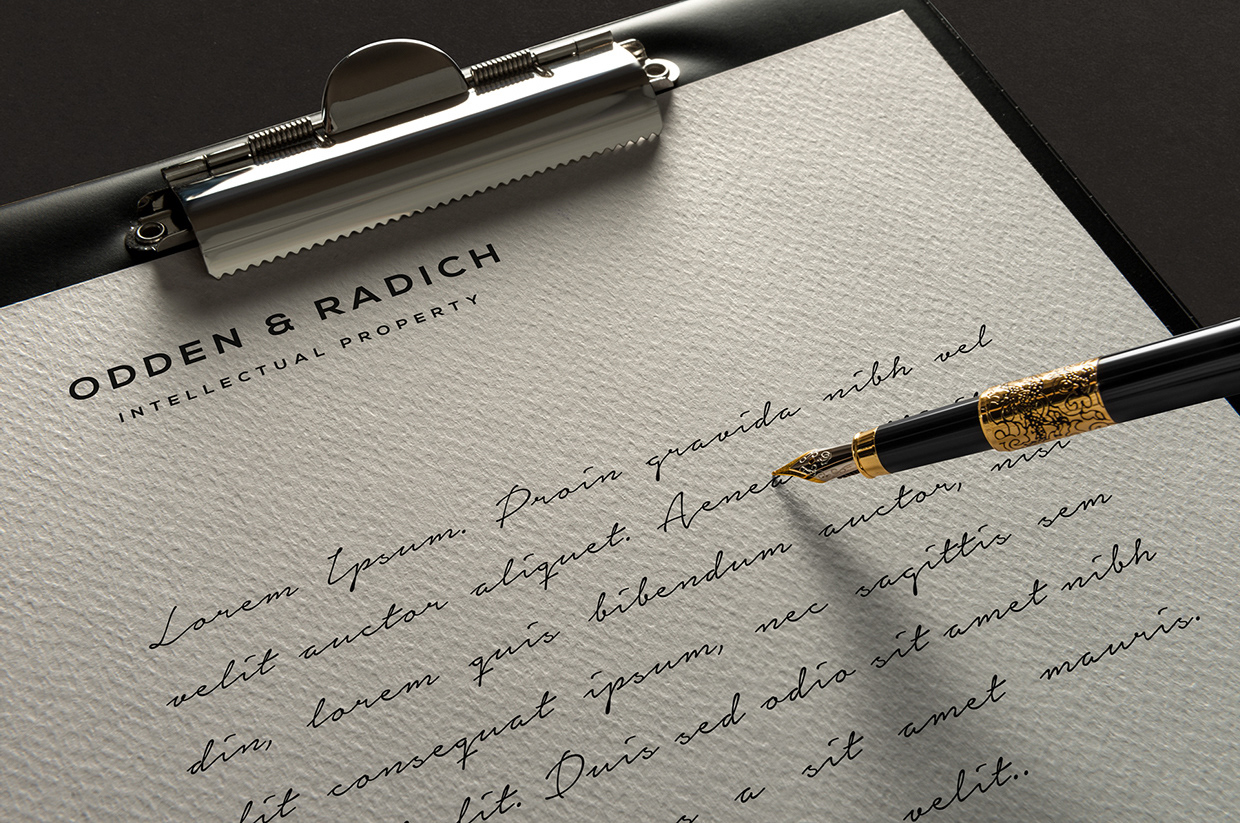 ODDEN & RADICH
INTELLECTUAL PROPERTY
Lorem Ipsum. Proin gravida nibh vel
velit auctor aliquet. Aenea
din, lorem quis bibendum auctor, nisi
consequat ipsum, nec sagittis sem
Duis sed odio sit amet nibh
a sit amet mauris.
velit..